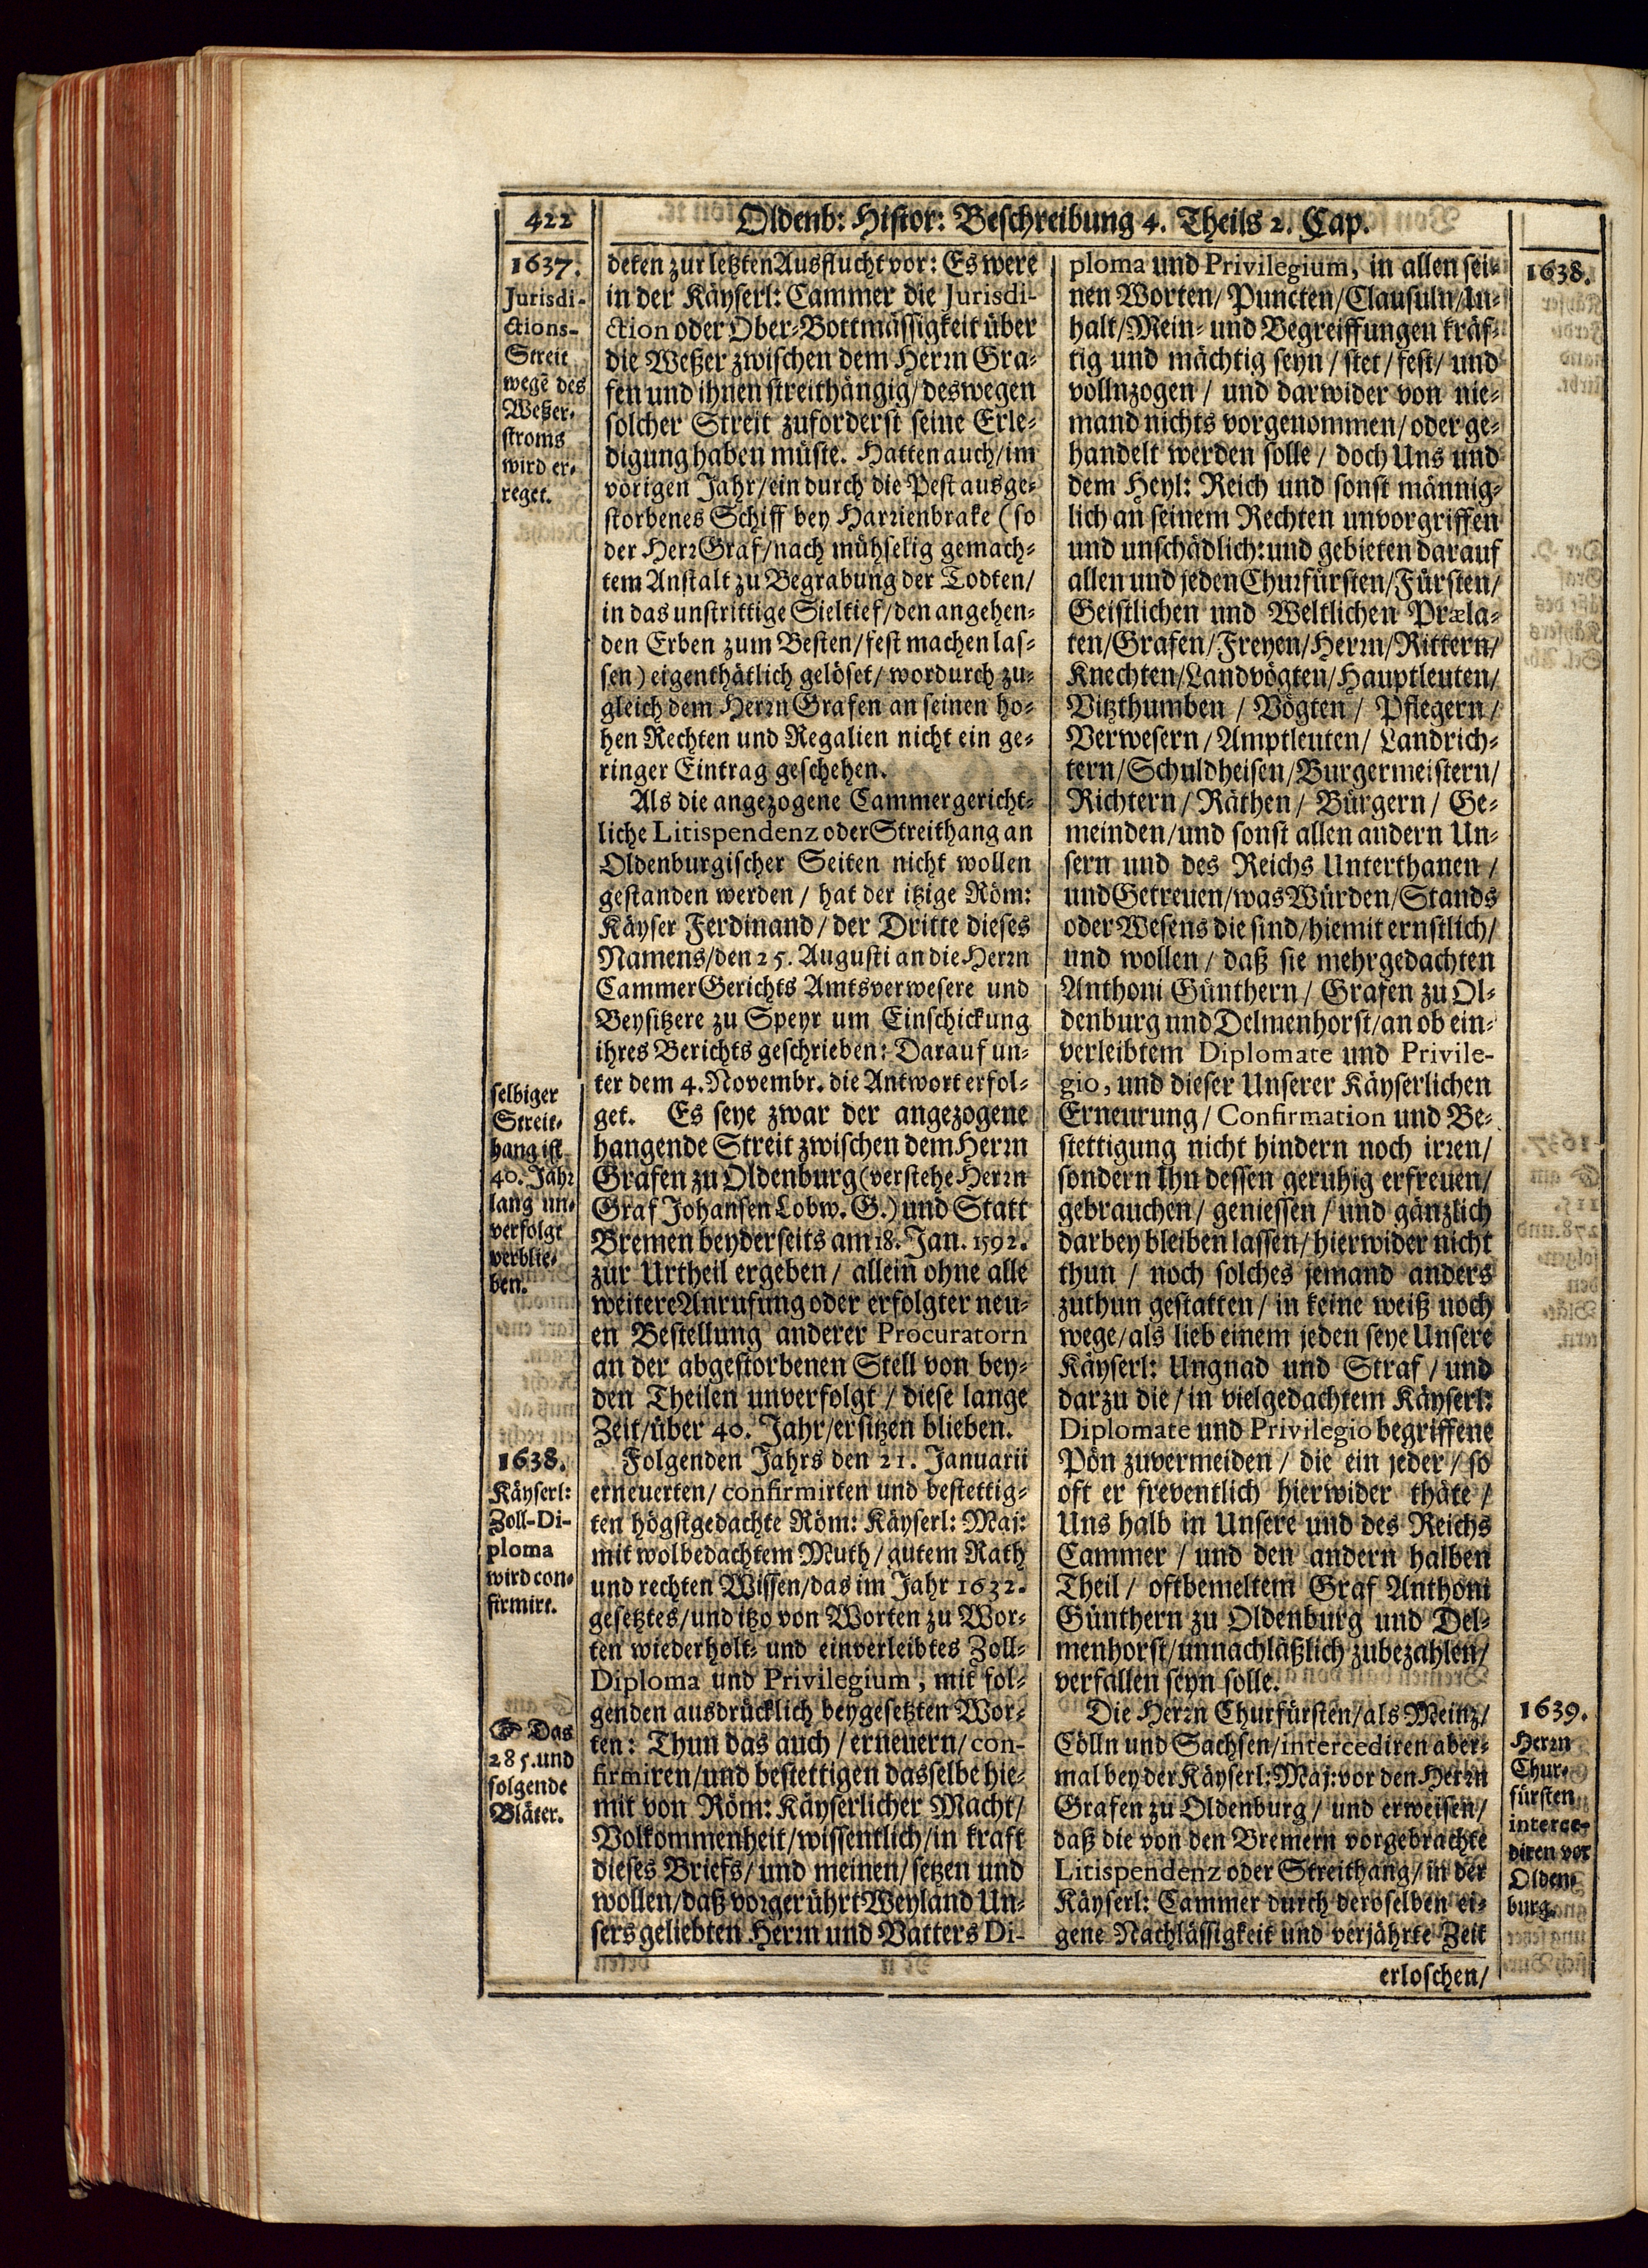 422
Oldenb: Histor: Beschreibung 4. Theils 2. Cap.
1637.
Jurisdi-
ctions-
Streit
wegē des
Weßer-
stroms
wird er-
reget.
selbiger
Streit-
hang ist
40. Jahr
lang un-
verfolgt
verblie-
ben.
1638.
Käyserl:
Zoll-Di-
ploma
wird con-
firmirt.
☞ Das
285. und
folgende
Bläter.
deten zur letzten Ausflucht vor: Es were
in der Käyserl: Cammer die Jurisdi-
ction oder Ober-Bottmässigkeit über
die Weßer zwischen dem Herrn Gra-
fen und ihnen streithängig/ deswegen
solcher Streit zuforderst seine Erle-
digung haben müste. Hatten auch/ im
vorigen Jahr/ ein durch die Pest ausge-
storbenes Schiff bey Harrienbrake (so
der Herr Graf/ nach mühselig gemach-
tem Anstalt zu Begrabung der Todten/
in das unstrittige Sieltief/ den angehen-
den Erben zum Besten/ fest machen las-
sen) eigenthätlich gelöset/ wordurch zu-
gleich dem Herrn Grafen an seinen ho-
hen Rechten und Regalien nicht ein ge-
ringer Eintrag geschehen.
Als die angezogene Cammergericht-
liche Litispendenz oder Streithang an
Oldenburgischer Seiten nicht wollen
gestanden werden / hat der itzige Röm:
Käyser Ferdinand/ der Dritte dieses
Namens/ den 25. Augusti an die Herrn
Cammer Gerichts Amtsverwesere und
Beysitzere zu Speyr um Einschickung
ihres Berichts geschrieben: Darauf un-
ter dem 4. Novembr. die Antwort erfol-
get. Es seye zwar der angezogene
hangende Streit zwischen dem Herrn
Grafen zu Oldenburg (verstehe Herrn
Graf Johansen Lobw. G.) und Statt
Bremen beyderseits am 18. Jan. 1592.
zur Urtheil ergeben / allein ohne alle
weitere Anrufung oder erfolgter neu-
en Bestellung anderer Procuratorn
an der abgestorbenen Stell von bey-
den Theilen unverfolgt / diese lange
Zeit/ über 40. Jahr/ ersitzen blieben.
Folgenden Jahrs den 21. Januarii
erneuerten/ confirmirten und bestettig-
ten högstgedachte Röm: Käyserl: Maj:
mit wolbedachtem Muth / gutem Rath
und rechten Wissen/ das im Jahr 1632.
gesetztes/ und itzo von Worten zu Wor-
ten wiederholt- und einverleibtes Zoll-
Diploma und Privilegium, mit fol-
genden ausdrücklich beygesetzten Wor-
ten: Thun das auch / erneuern/ con-
firmiren/ und bestettigen dasselbe hie-
mit von Röm: Käyserlicher Macht/
Volkommenheit/ wissentlich/ in kraft
dieses Briefs/ und meinen/ setzen und
wollen/ daß vorgerührt Weyland Un-
sers geliebten Herrn und Vatters Di-
ploma und Privilegium, in allen sei-
nen Worten/ Puncten/ Clausuln/ In-
halt/ Mein- und Begreiffungen kräf-
tig und mächtig seyn / stet / fest / und
vollnzogen / und darwider von nie-
mand nichts vorgenommen/ oder ge-
handelt werden solle / doch Uns und
dem Heyl: Reich und sonst männig-
lich an seinem Rechten unvorgriffen
und unschädlich: und gebieten darauf
allen und jeden Churfürsten/ Fürsten/
Geistlichen und Weltlichen Præla-
ten/ Grafen/ Freyen/ Herrn/ Rittern/
Knechten/ Landvögten/ Hauptleuten/
Vitzthumben / Vögten / Pflegern /
Verwesern / Amptleuten / Landrich-
tern/ Schuldheisen/ Burgermeistern/
Richtern / Räthen / Bürgern / Ge-
meinden/ und sonst allen andern Un-
sern und des Reichs Unterthanen /
und Getreuen/ was Würden/ Stands
oder Wesens die sind/ hiemit ernstlich/
und wollen / daß sie mehrgedachten
Anthoni Günthern / Grafen zu Ol-
denburg und Delmenhorst/ an ob ein-
verleibtem Diplomate und Privile-
gio, und dieser Unserer Käyserlichen
Erneurung / Confirmation und Be-
stettigung nicht hindern noch irren/
sondern Ihn dessen geruhig erfreuen/
gebrauchen/ geniessen / und gänzlich
darbey bleiben lassen/ hierwider nicht
thun / noch solches jemand anders
zuthun gestatten / in keine weiß noch
wege/ als lieb einem jeden seye Unsere
Käyserl: Ungnad und Straf / und
darzu die / in vielgedachtem Käyserl:
Diplomate und Privilegio begriffene
Pön zuvermeiden / die ein jeder / so
oft er freventlich hierwider thäte /
Uns halb in Unsere und des Reichs
Cammer / und den andern halben
Theil / oftbemeltem Graf Anthoni
Günthern zu Oldenburg und Del-
menhorst/ unnachläßlich zubezahlen/
verfallen seyn solle.
Die Herrn Churfürsten/ als Meinz/
Cölln und Sachsen/ intercediren aber-
mal bey der Käyserl: Maj: vor den Herrn
Grafen zu Oldenburg / und erweisen/
daß die von den Bremern vorgebrachte
Litispendenz oder Streithang/ in der
Käyserl: Cammer durch deroselben ei-
gene Nachlässigkeit und verjährte Zeit
erloschen/
1638.
1639.
Herrn
Chur-
fürsten
interce-
diren vor
Olden-
burg.